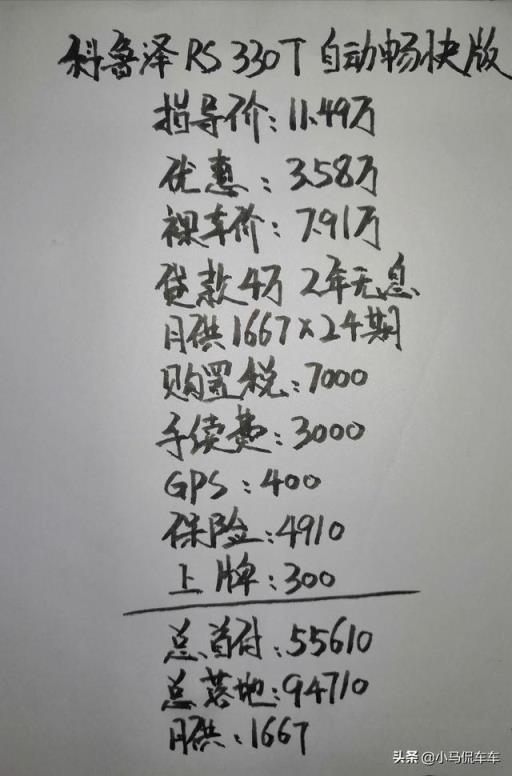 科鲁泽 RS 330T 自动畅快版
指导价:11.49万
优惠:3.58万
裸车价:7.91万
贷款4万 2年无息
月供1667×24期
购置税:7000
手续费:3000
GPS:400
保险:4910
上牌:300
总首付:55610
总落地:94710
月供:1667
头条 @小马侃车车